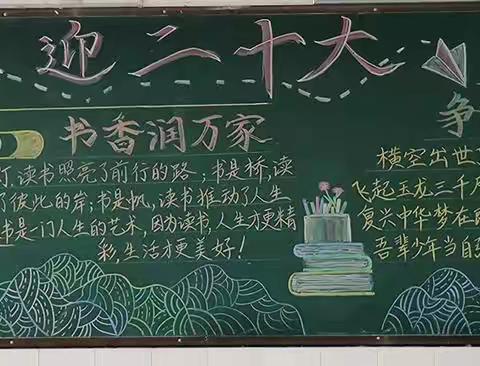 迎二十大
书香润万家
灯,读书照亮了前行的路;书是桥,读
了彼此的岸;书是帆,读书推动了人生
书是一门人生的艺术,因为读书,人生才更精
彩,生活才更美好!
争
横空出世
飞起玉龙三千
复兴中华梦在
吾辈少年当自